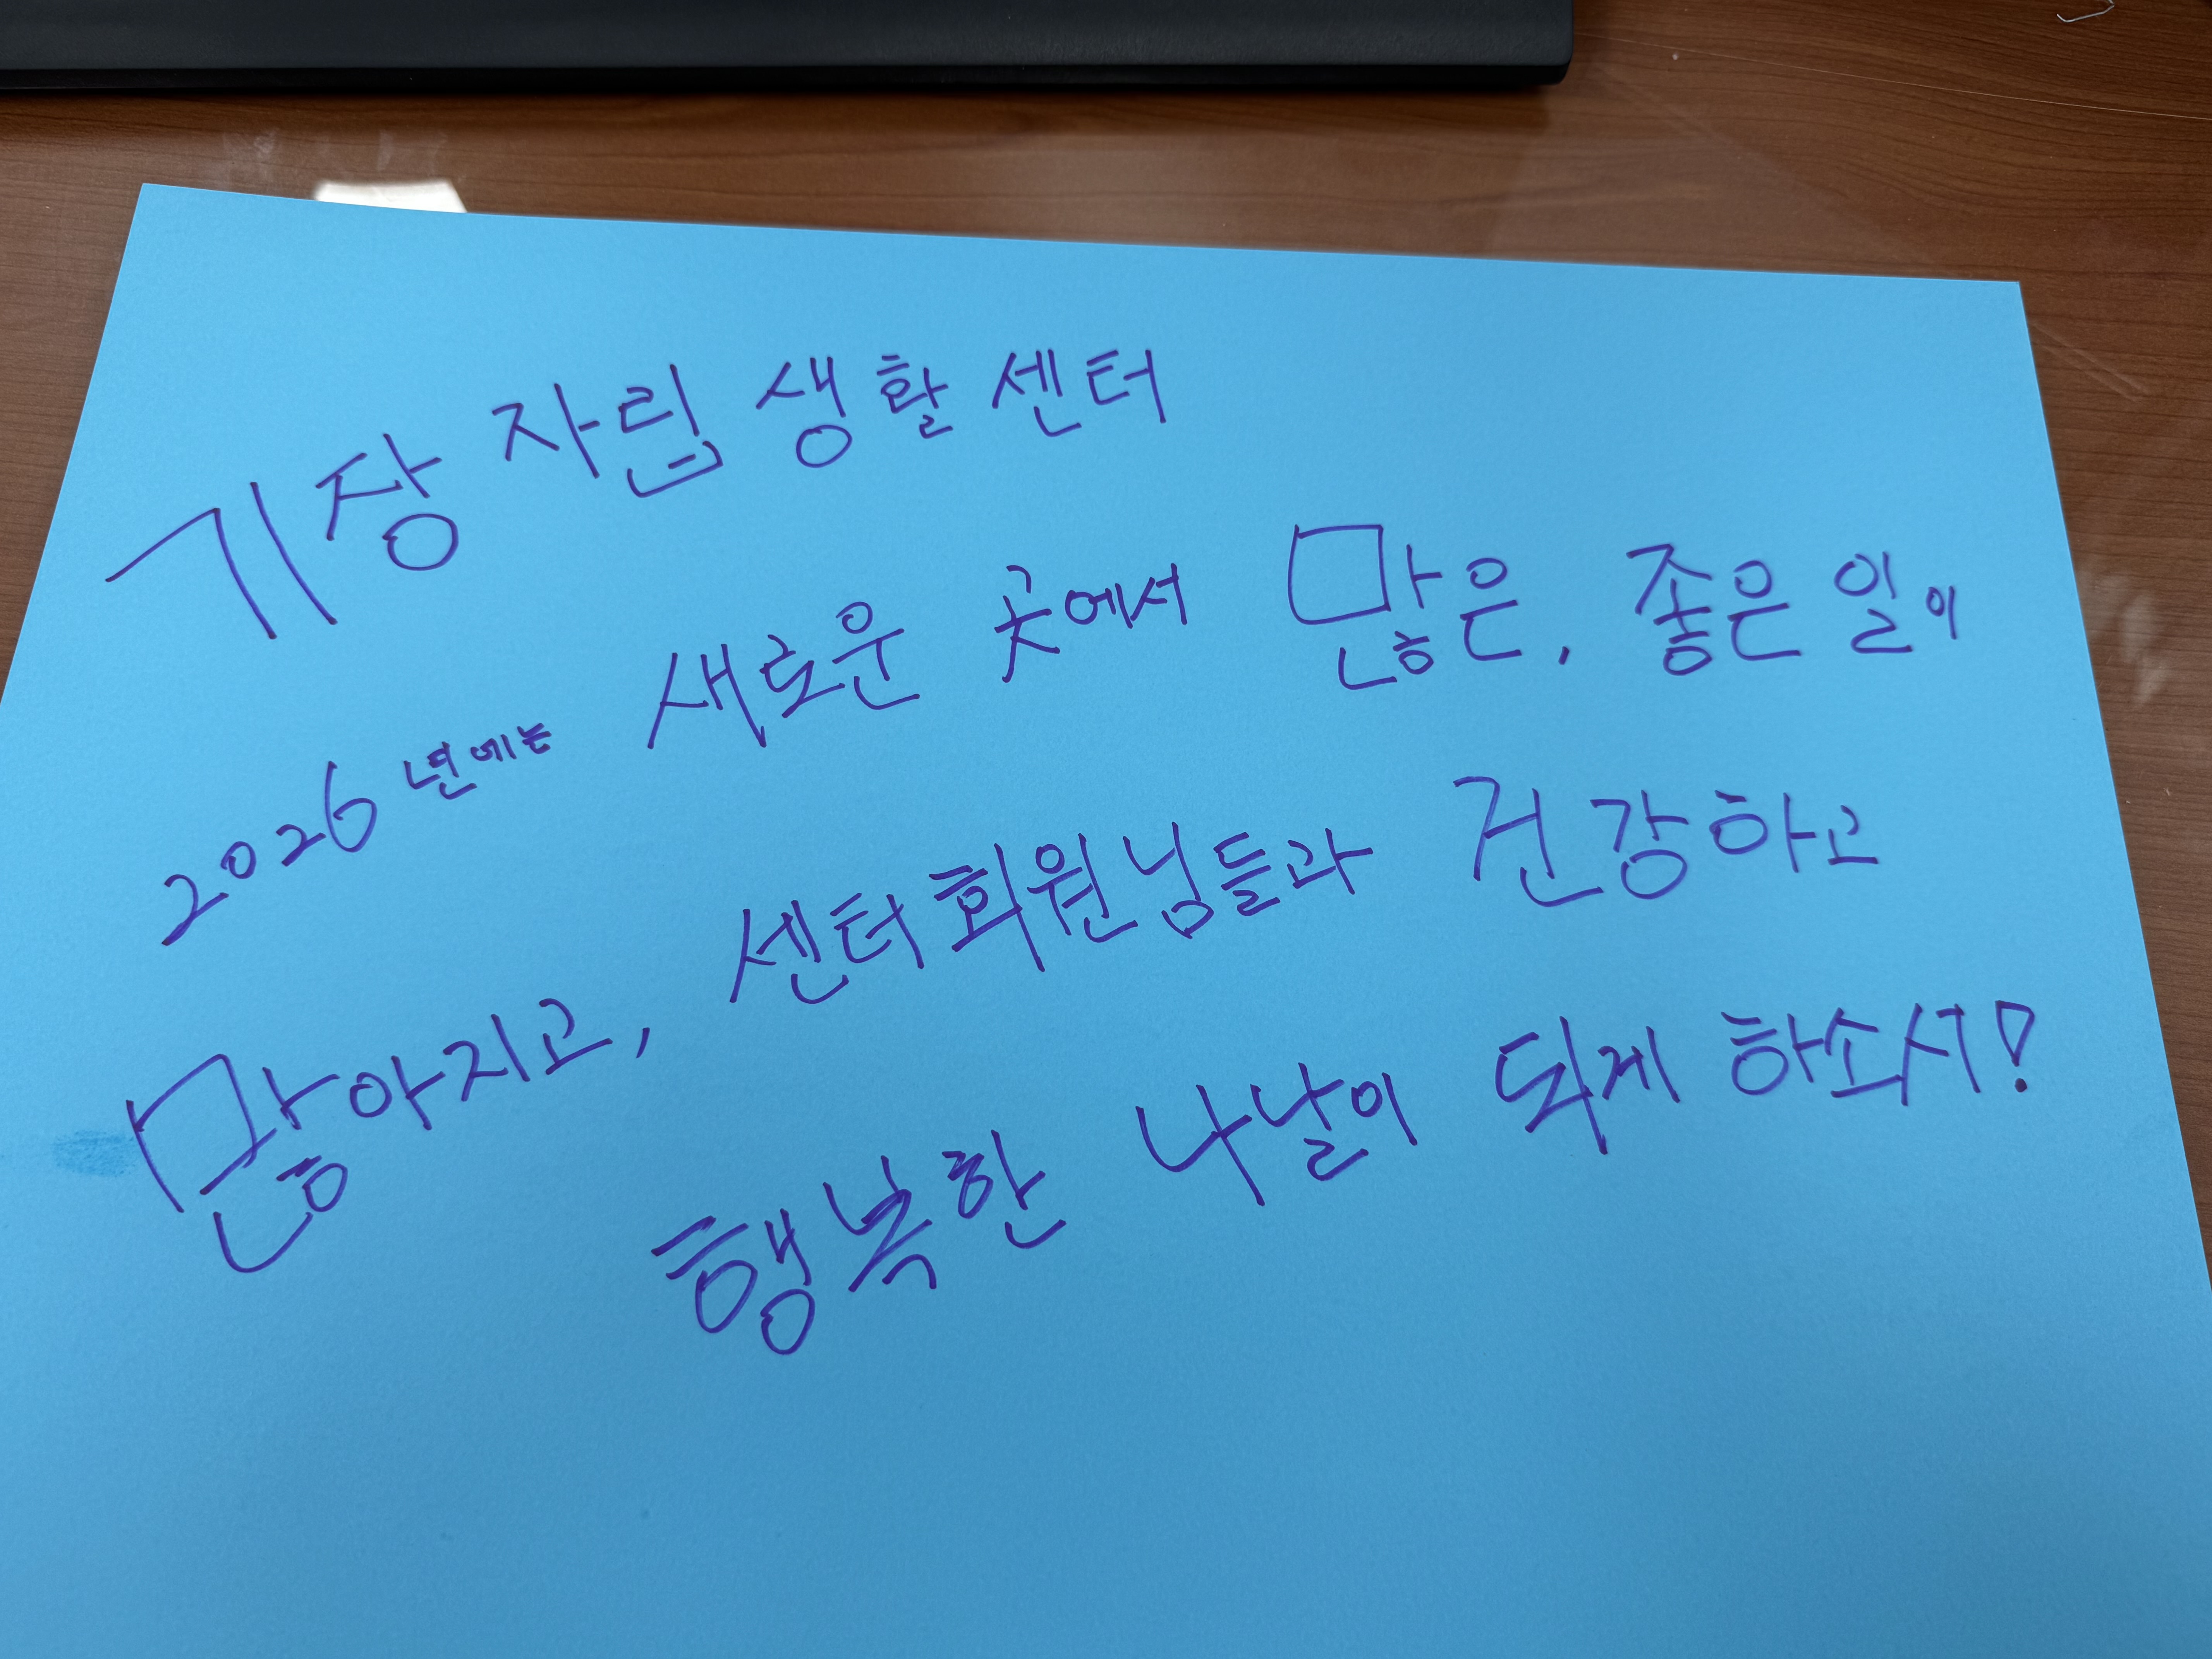 기장 자립 생활 센터
2026년에는 새로운 곳에서 많은, 좋은 일이
많아지고, 센터 회원님들과 건강하고
행복한 나날이 되게 하소서!